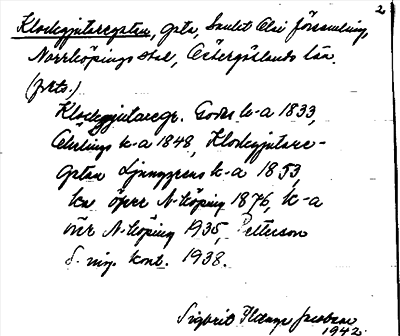 2
Klockgjutaregatan, gata, Sankt Olai församling,
Norrköpings stad, Östergötlands län.
(forts.)
Klockgjutaregr. Godes k-a 1833,
Öhrlings k-a 1848, Klockgjutare-
gatan Ljunggrens k-a 1853,
ka över N-köping 1876, k-a
över N-köping 1935, Petterson
1938.
Sigbrit
1942.